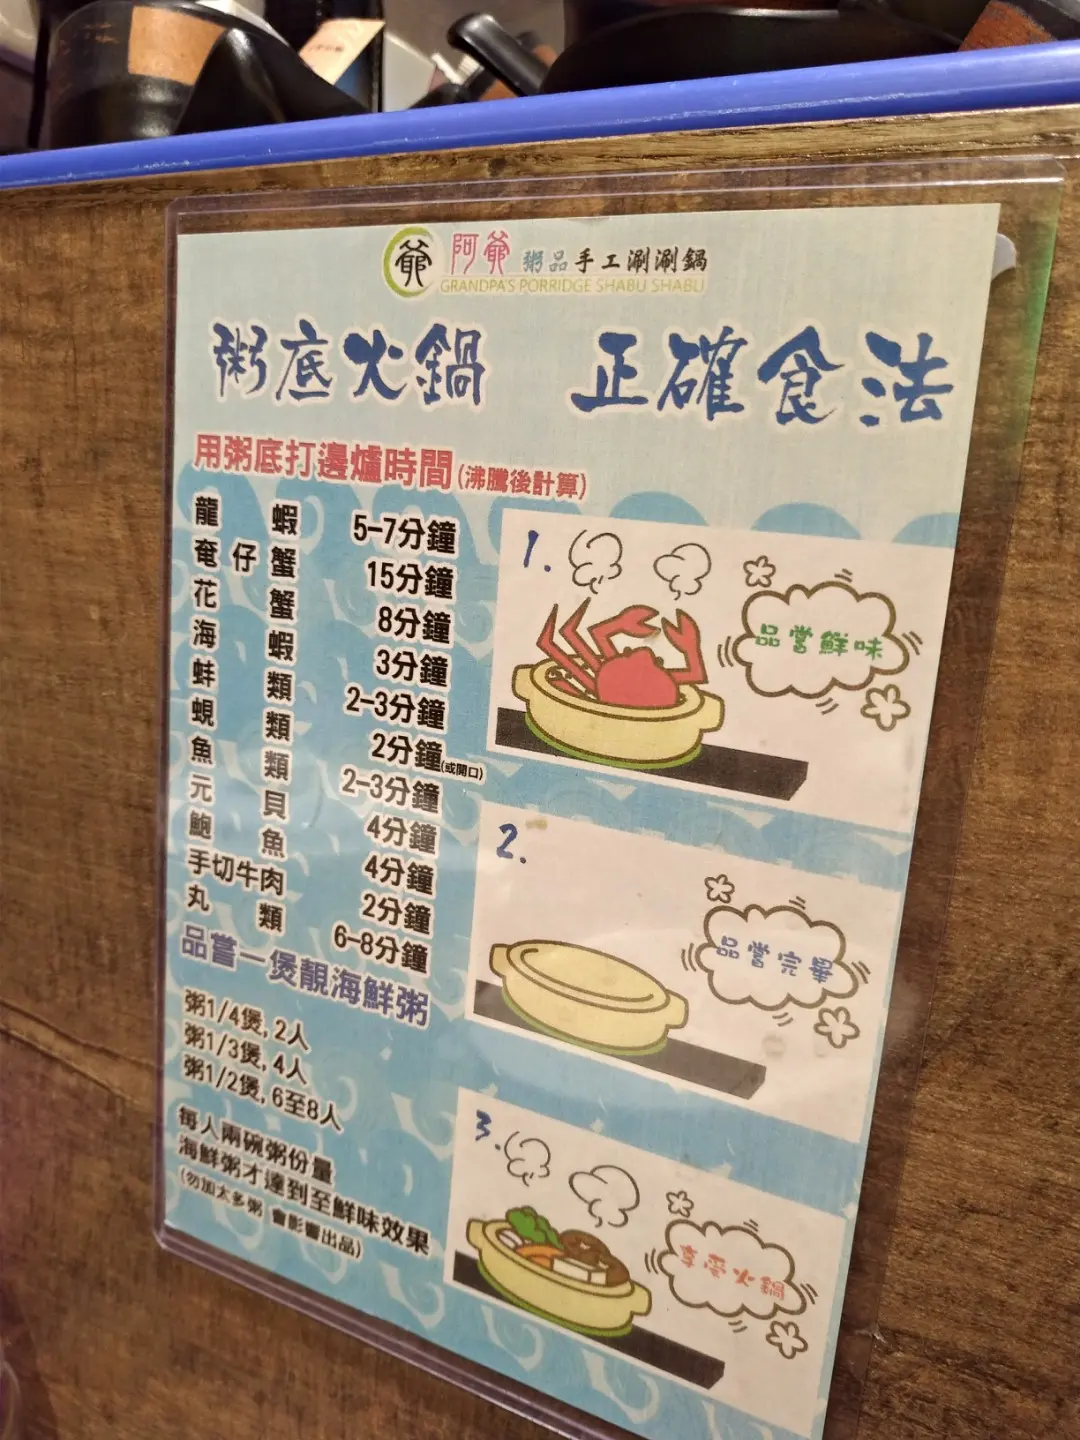 爺 阿爺 粥品手工涮涮鍋
GRANDPA'S PORRIDGE SHABU SHABU
粥底火鍋 正確食法
用粥底打邊爐時間(沸騰後計算)
龍蝦 5-7分鐘
奄仔蟹 15分鐘
花蟹 8分鐘
海蝦 3分鐘
蚌類 2-3分鐘
蜆類 2分鐘(或開口)
魚類 2-3分鐘
元貝 4分鐘
鮑魚 4分鐘
手切牛肉 2分鐘
丸類 6-8分鐘
品嘗一煲靚海鮮粥
粥1/4煲, 2人
粥1/3煲, 4人
粥1/2煲, 6至8人
每人兩碗粥份量
海鮮粥才達到至鮮味效果
(勿加太多粥 會影響出品)
1.
品嘗鮮味
2.
品嘗完畢
3.
享受火鍋